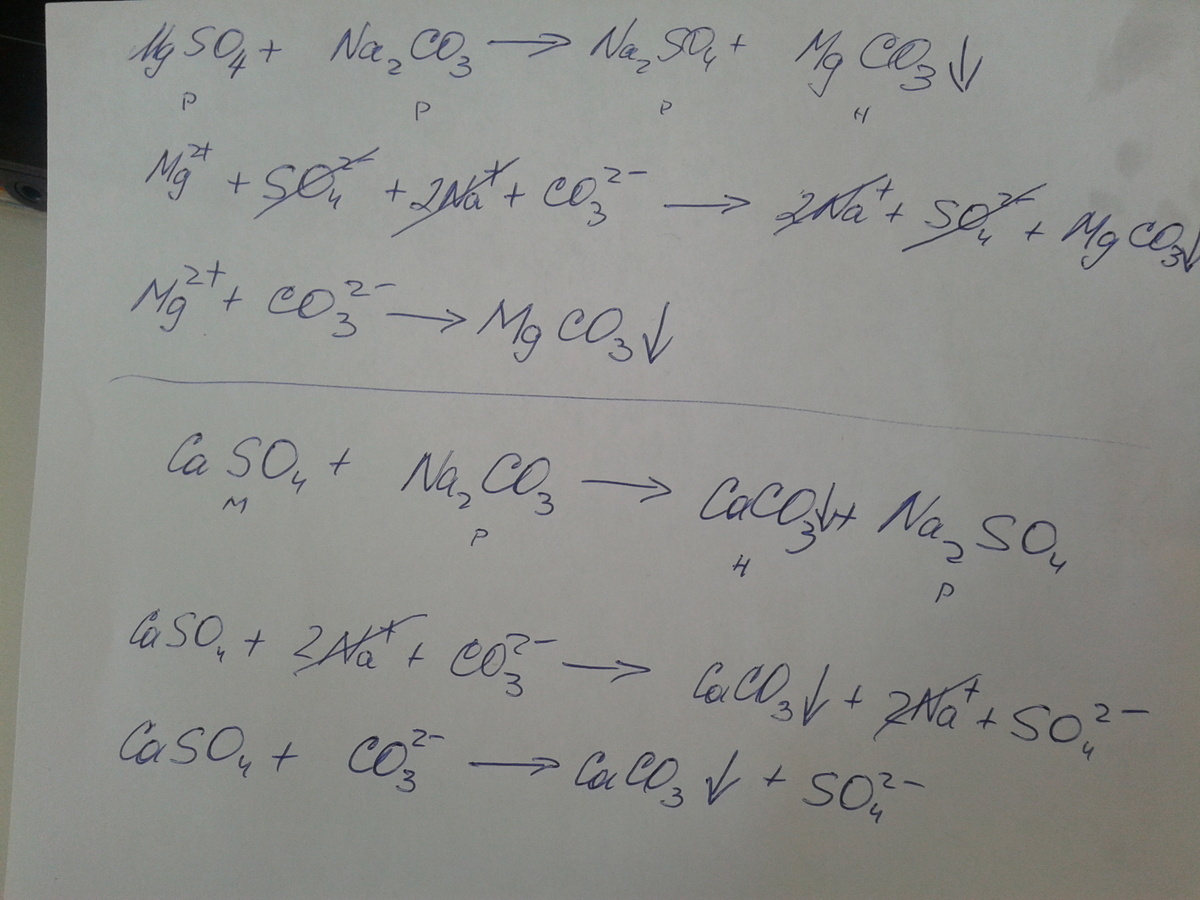 MgSO₄ + Na₂CO₃ → Na₂SO₄ + MgCO₃↓
р р р н
Mg²⁺ + SO₄²⁻ + 2Na⁺ + CO₃²⁻ → 2Na⁺ + SO₄²⁻ + MgCO₃↓
Mg²⁺ + CO₃²⁻ → MgCO₃↓
CaSO₄ + Na₂CO₃ → CaCO₃↓ + Na₂SO₄
м р н р
CaSO₄ + 2Na⁺ + CO₃²⁻ → CaCO₃↓ + 2Na⁺ + SO₄²⁻
CaSO₄ + CO₃²⁻ → CaCO₃↓ + SO₄²⁻